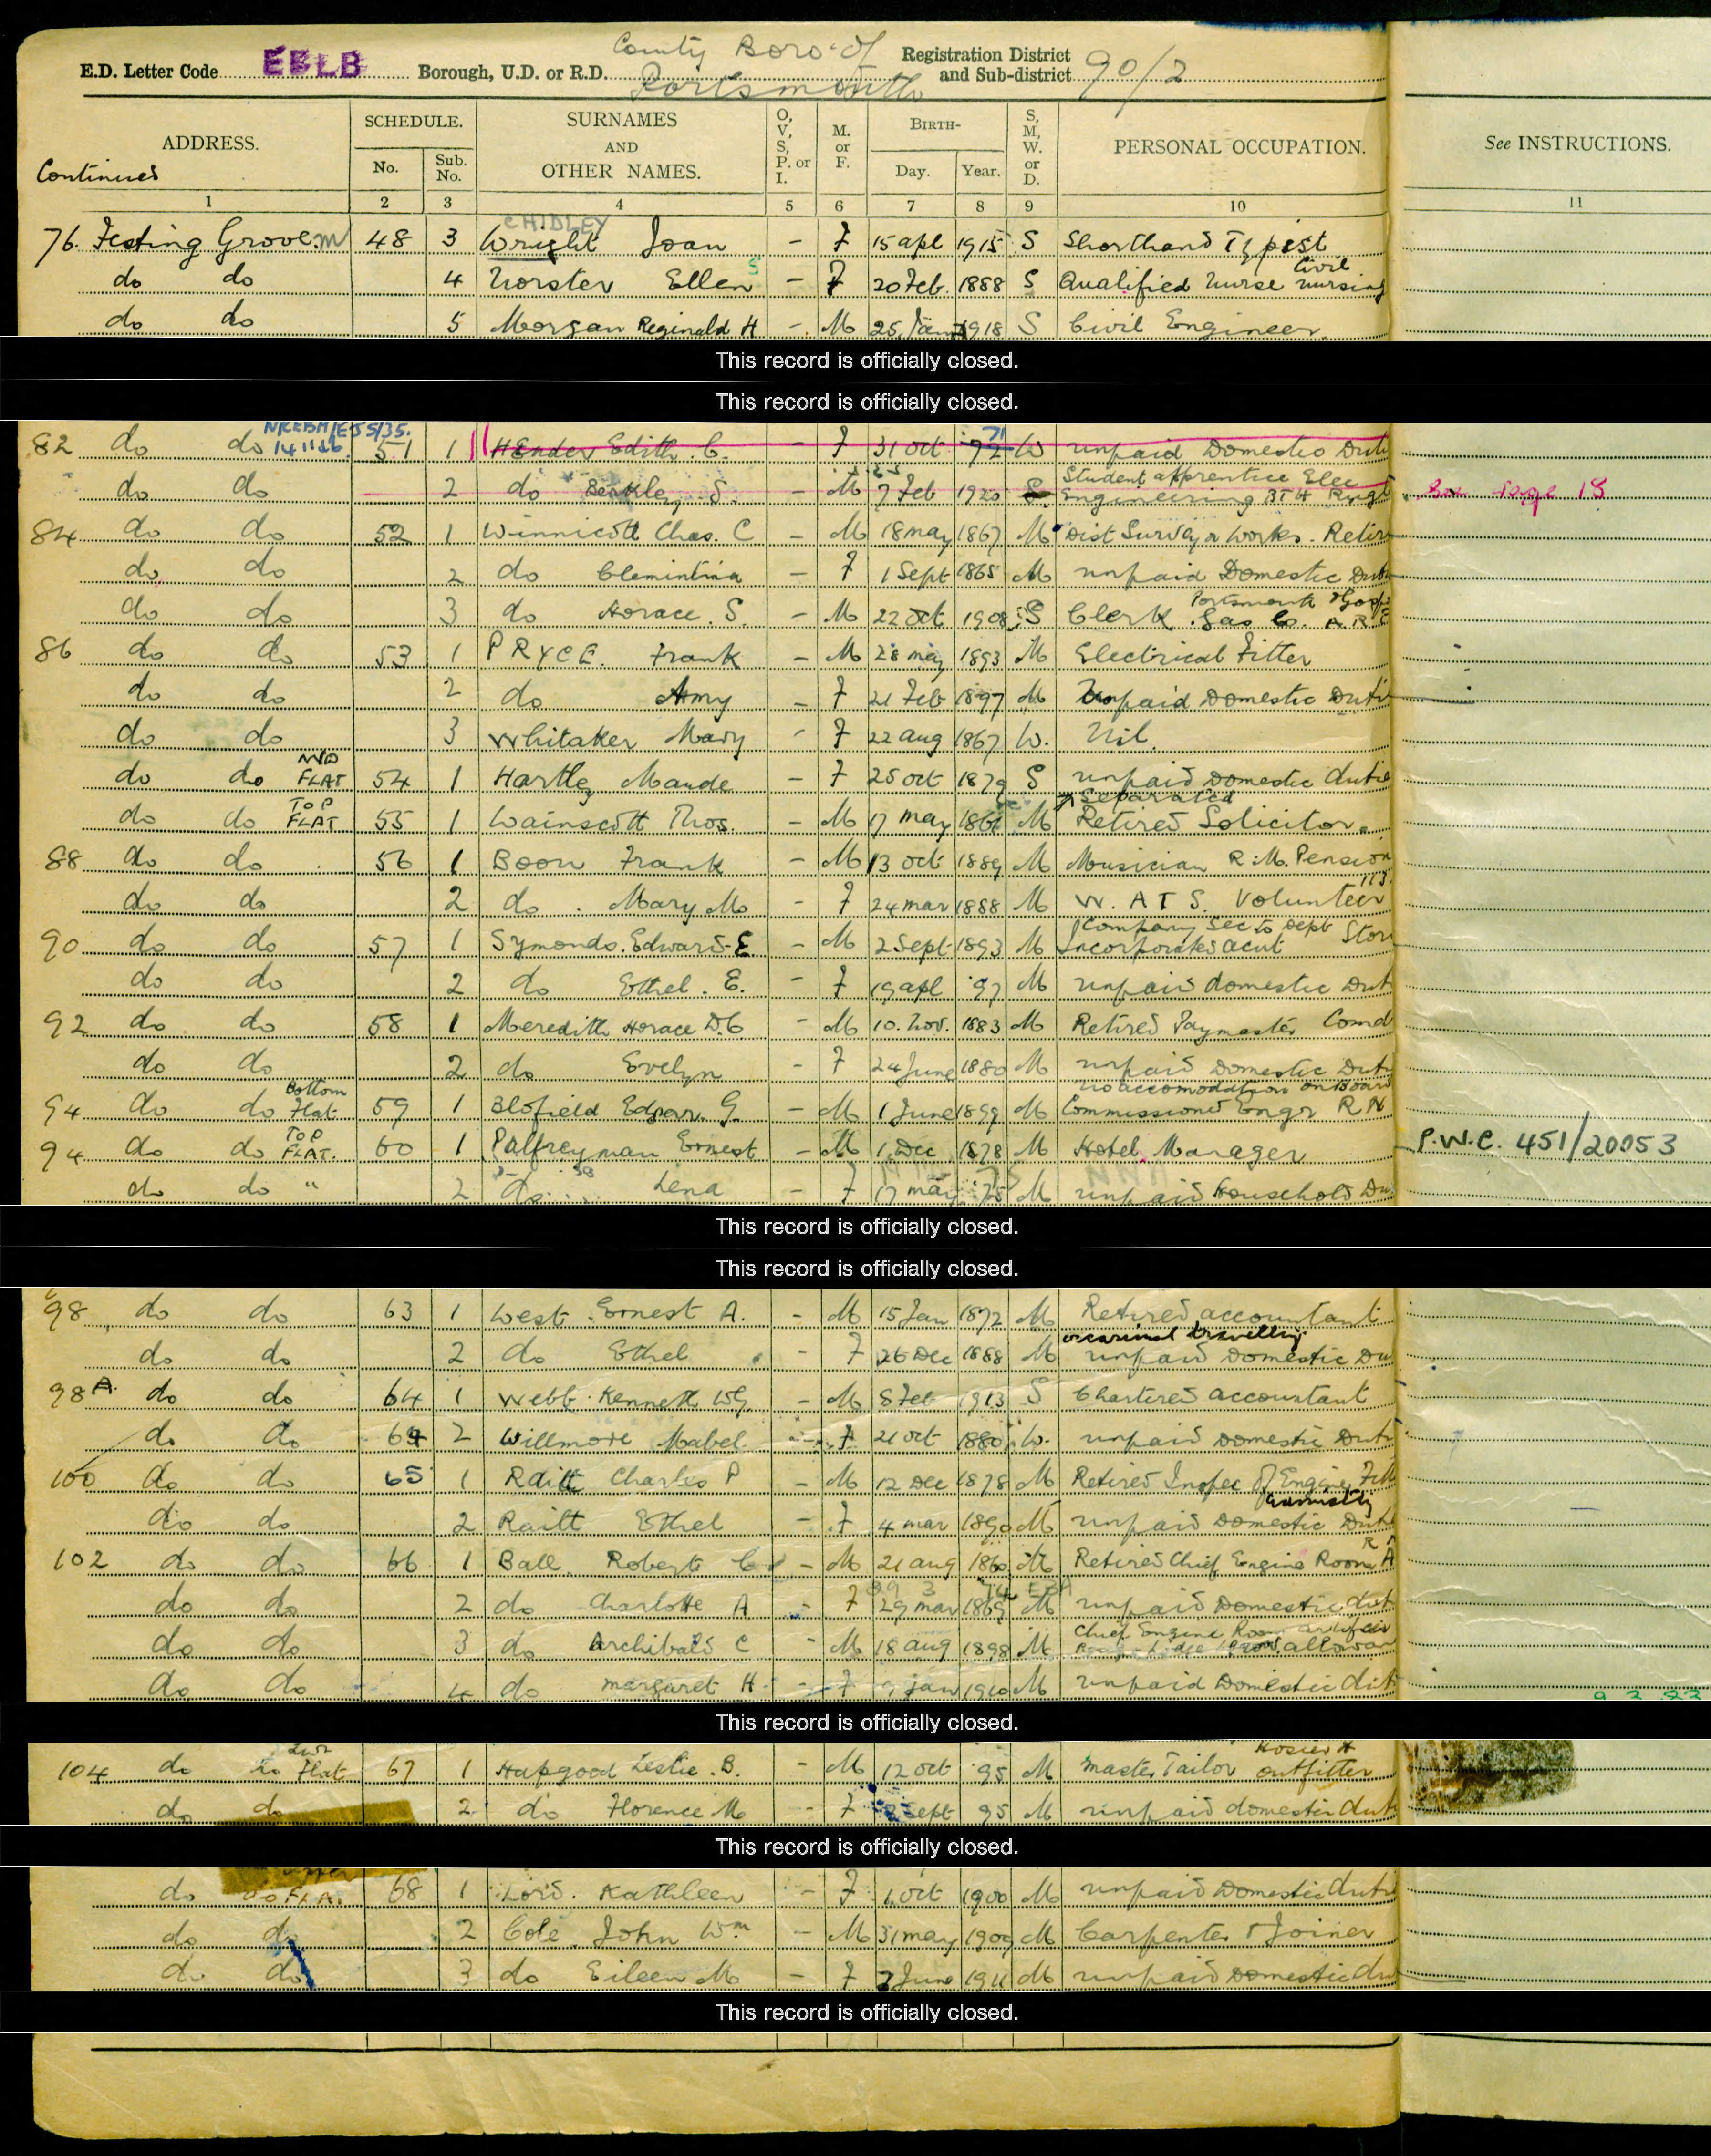 County Boro' of
E.D. Letter Code EBLB Borough, U.D. or R.D. Portsmouth Registration District and Sub-district 90/2
ADDRESS. SCHEDULE. No. Sub. No. SURNAMES AND OTHER NAMES. O, V, S, P. or I. M. or F. BIRTH- Day. Year. S, M, W. or D. PERSONAL OCCUPATION. See INSTRUCTIONS.
Continued
1 2 3 4 5 6 7 8 9 10 11
CHIDLEY
76 Festing Grove 48 3 Wright Joan - F 15 apl 1915 S Shorthand Typist
do do 4 Norster Ellen S - F 20 Feb. 1888 S Qualified Nurse Civil nursing
do do 5 Morgan Reginald H - M 25 Jan 1918 S Civil Engineer
This record is officially closed.
This record is officially closed.
82 do do 51 1 Hender Edith. C. - F 31 Oct 72 71 W unpaid Domestic Duti
do do 2 do S. - M 7 Feb 1920 S Student apprentice Elec Engineering BTH Rugb See page 18
84 do do 52 1 Winnicott Chas. C - M 18 may 1867 M Dist Survey or Works. Retir
do do 2 do Clemintina - F 1 Sept 1865 M unpaid Domestic Duti
do do 3 do Horace. S. - M 22 Oct 1908 S Clerk Portsmouth & Gosp Gas Co. A R P
86 do do 53 1 PRYCE. Frank - M 28 may 1893 M Electrical Fitter
do do 2 do Amy - F 21 Feb 1897 M Unpaid Domestic Duti
do do 3 Whitaker Mary - F 22 aug 1867 W. Nil.
do do FLAT 54 1 Hartley Maude - F 25 oct 1879 S unpaid Domestic dutie
do do TOP FLAT 55 1 Wainscott Thos. - M 17 may 1861 M Separated Retired Solicitor.
88 do do 56 1 Boon Frank - M 13 oct 1889 M Musician R.M. Pension
do do 2 do. Mary M - F 24 mar 1888 M W. A T S. Volunteer 113.
90 do do 57 1 Symonds. Edward. E - M 2 Sept 1893 M Company Sec to Dept Stor Incorporated acnt
do do 2 do Ethel. E. - F 19 apl '97 M unpaid domestic Dut
92 do do 58 1 Meredith Horace D.C - M 10. Nov. 1883 M Retired Paymaster Comd
do do 2 do Evelyn - F 24 June 1880 M unpaid Domestic Dut
94 do do Bottom Flat 59 1 Blofield Edgar. G. - M 1 June 1899 M no accomodation on Board Commissioned Engr R N
94 do do TOP FLAT. 60 1 Palfreyman Ernest - M 1. Dec 1878 M Hotel Manager P.W.C. 451/20053
do do " 2 do Lena - F 17 may '75 M unpaid household Du
This record is officially closed.
This record is officially closed.
98 do do 63 1 West. Ernest A. - M 15 Jan 1872 M Retired accountant occasional travelling
do do 2 do Ethel - F 26 Dec 1888 M unpaid Domestic Du
98A. do do 64 1 Webb. Kenneth WG. - M 8 Feb 1913 S Chartered accountant
do do 64 2 Willmore Mabel - F 21 oct 1880 W. unpaid Domestic Duti
100 do do 65 1 Raitt Charles P - M 12 Dec 1878 M Retired Inspec of Engine Fitt
do do 2 Raitt Ethel - F 4 mar 1890 M unpaid Domestic Duti
102 do do 66 1 Ball. Robert C - M 21 aug 1860 M Retired Chief Engine Room A R N
do do 2 do Charlotte A - F 29 mar 1869 M unpaid Domestic dut
do do 3 do Archibald C - M 18 aug 1898 M Chief Engine Room artificer allowan
do do 4 do margaret H - F 9 jan 1910 M unpaid Domestic dut
This record is officially closed.
104 do do Flat 67 1 Hapgood Leslie. B. - M 12 oct '95 M master Tailor Hosier & outfitter
do do 2 do Florence M - F Sept 95 M unpaid domestic dut
This record is officially closed.
do do FLA. 68 1 Lord. Kathleen - F 1. Oct 1900 M unpaid Domestic duti
do do 2 Cole. John Wm - M 31 may 1909 M Carpenter & Joiner
do do 3 do Eileen M - F 7 June 1911 M unpaid Domestic du
This record is officially closed.